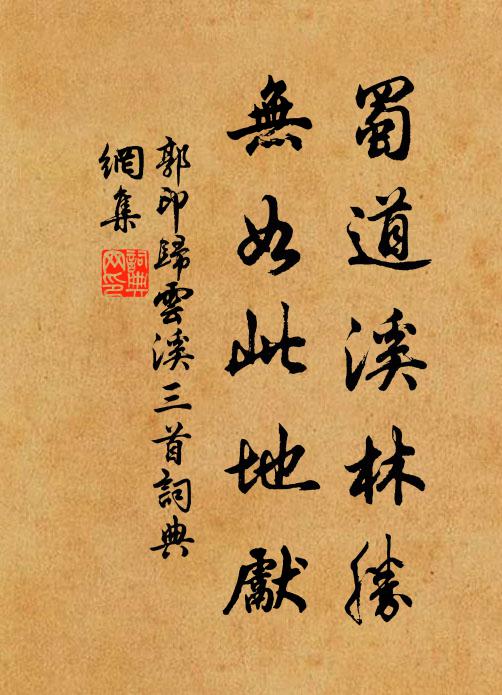 蜀道溪林勝
無如此地獻
郭印歸雲溪三首詞典
網集
詞典网印